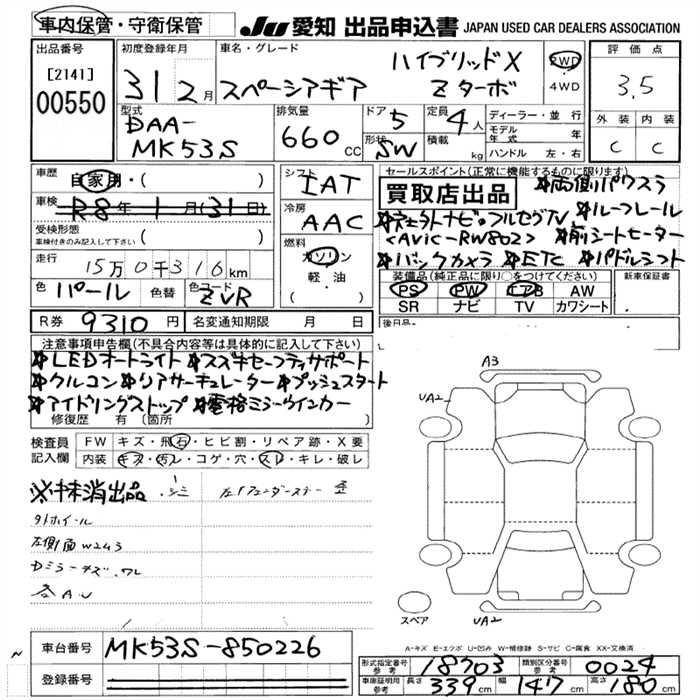 車内保管・守衛保管
JU 愛知 出品申込書 JAPAN USED CAR DEALERS ASSOCIATION
出品番号
[2141]
00550
初度登録年月
31 2月
車名・グレード
スペーシアギア
ハイブリッドX
Zターボ
2WD
4WD
評価点
3.5
外装 内装
C C
型式
DAA-
MK53S
排気量
660 CC
ドア 5
形状 SW
定員 4人
積載 kg
ディーラー・並行
モデル年式 年
ハンドル 左・右
車歴
自家用・( )
車検
R8年 1月(31日)
受検形態
車検付きのみ記入して下さい ( )
走行
15万0千316km
色 パール 色替 色コード ZVR
シフト
IAT
冷房
AAC
燃料
ガソリン
軽・油
( )
セールスポイント(正常に機能するものに限ります)
買取店出品
*両側パワスラ
*社外ナビ・フルセグTV *ルーフレール
<AVIC-RW802> *前シートヒーター
*バックカメラ *ETC *パドルシフト
装備品(純正品に限り○をつけてください)
PS PW エアB AW
SR ナビ TV カワシート
新車保証書
後日品
R券 9310円 名変通知期限 月 日
注意事項申告欄(不具合内容等は具体的に記入して下さい)
*LEDオートライト *スズキセーフティサポート
*クルコン *リアサーキュレーター *プッシュスタート
*アイドリングストップ *電格ミラーウインカー
修復歴 有(箇所 )
検査員記入欄
FW キズ・飛石・ヒビ割・リペア跡・X要
内装 キズ・汚レ・コゲ・穴・スレ・キレ・破レ
※抹消出品
外ホイール
左側面W2 4 3
Dミラーキズ、ワレ
各AU
A3
UA2
UA2
スペア
A-キズ E-エクボ U-凹み W-補修跡 S-サビ C-腐食 XX-交換済
車台番号 MK53S-850226
登録番号
型式指定番号 参考 18703 類別区分番号 参考 0024
車庫証明用 参考 長さ 339cm 幅 147cm 高さ 180cm